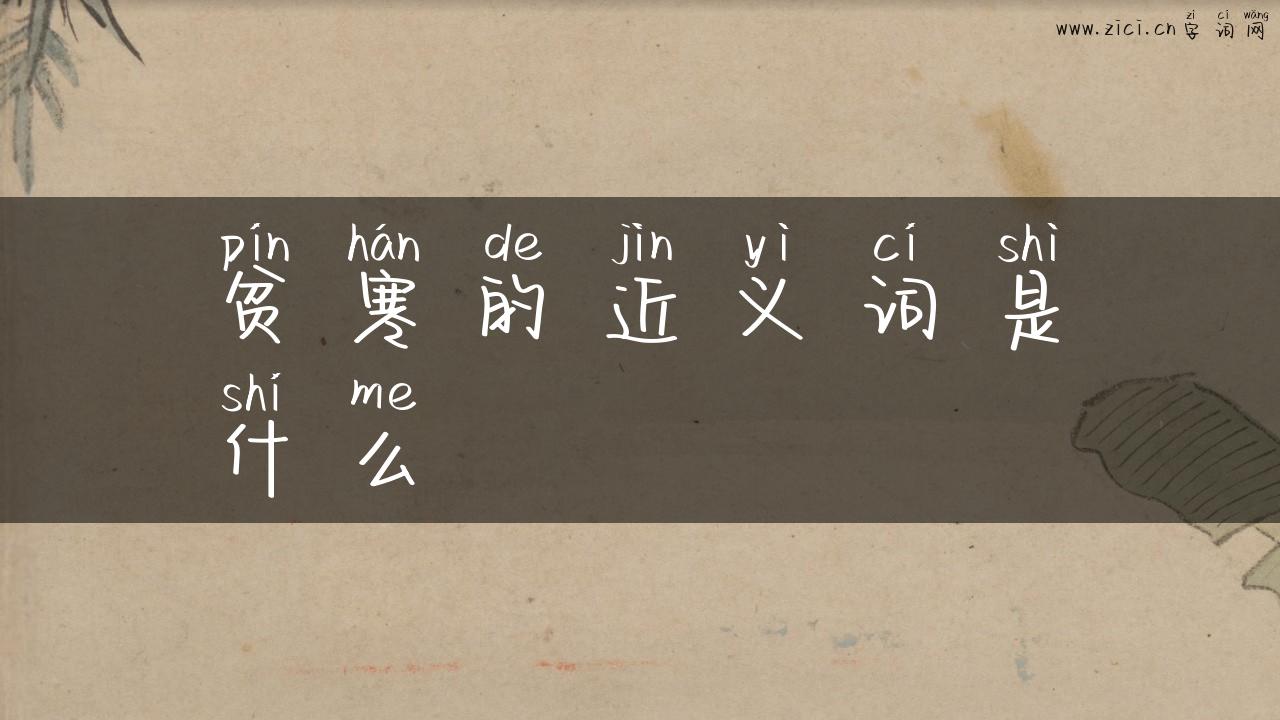 zì cí wǎng
www.zici.cn 字 词 网
pín hán de jìn yì cí shì
贫 寒 的 近 义 词 是
shí me
什 么